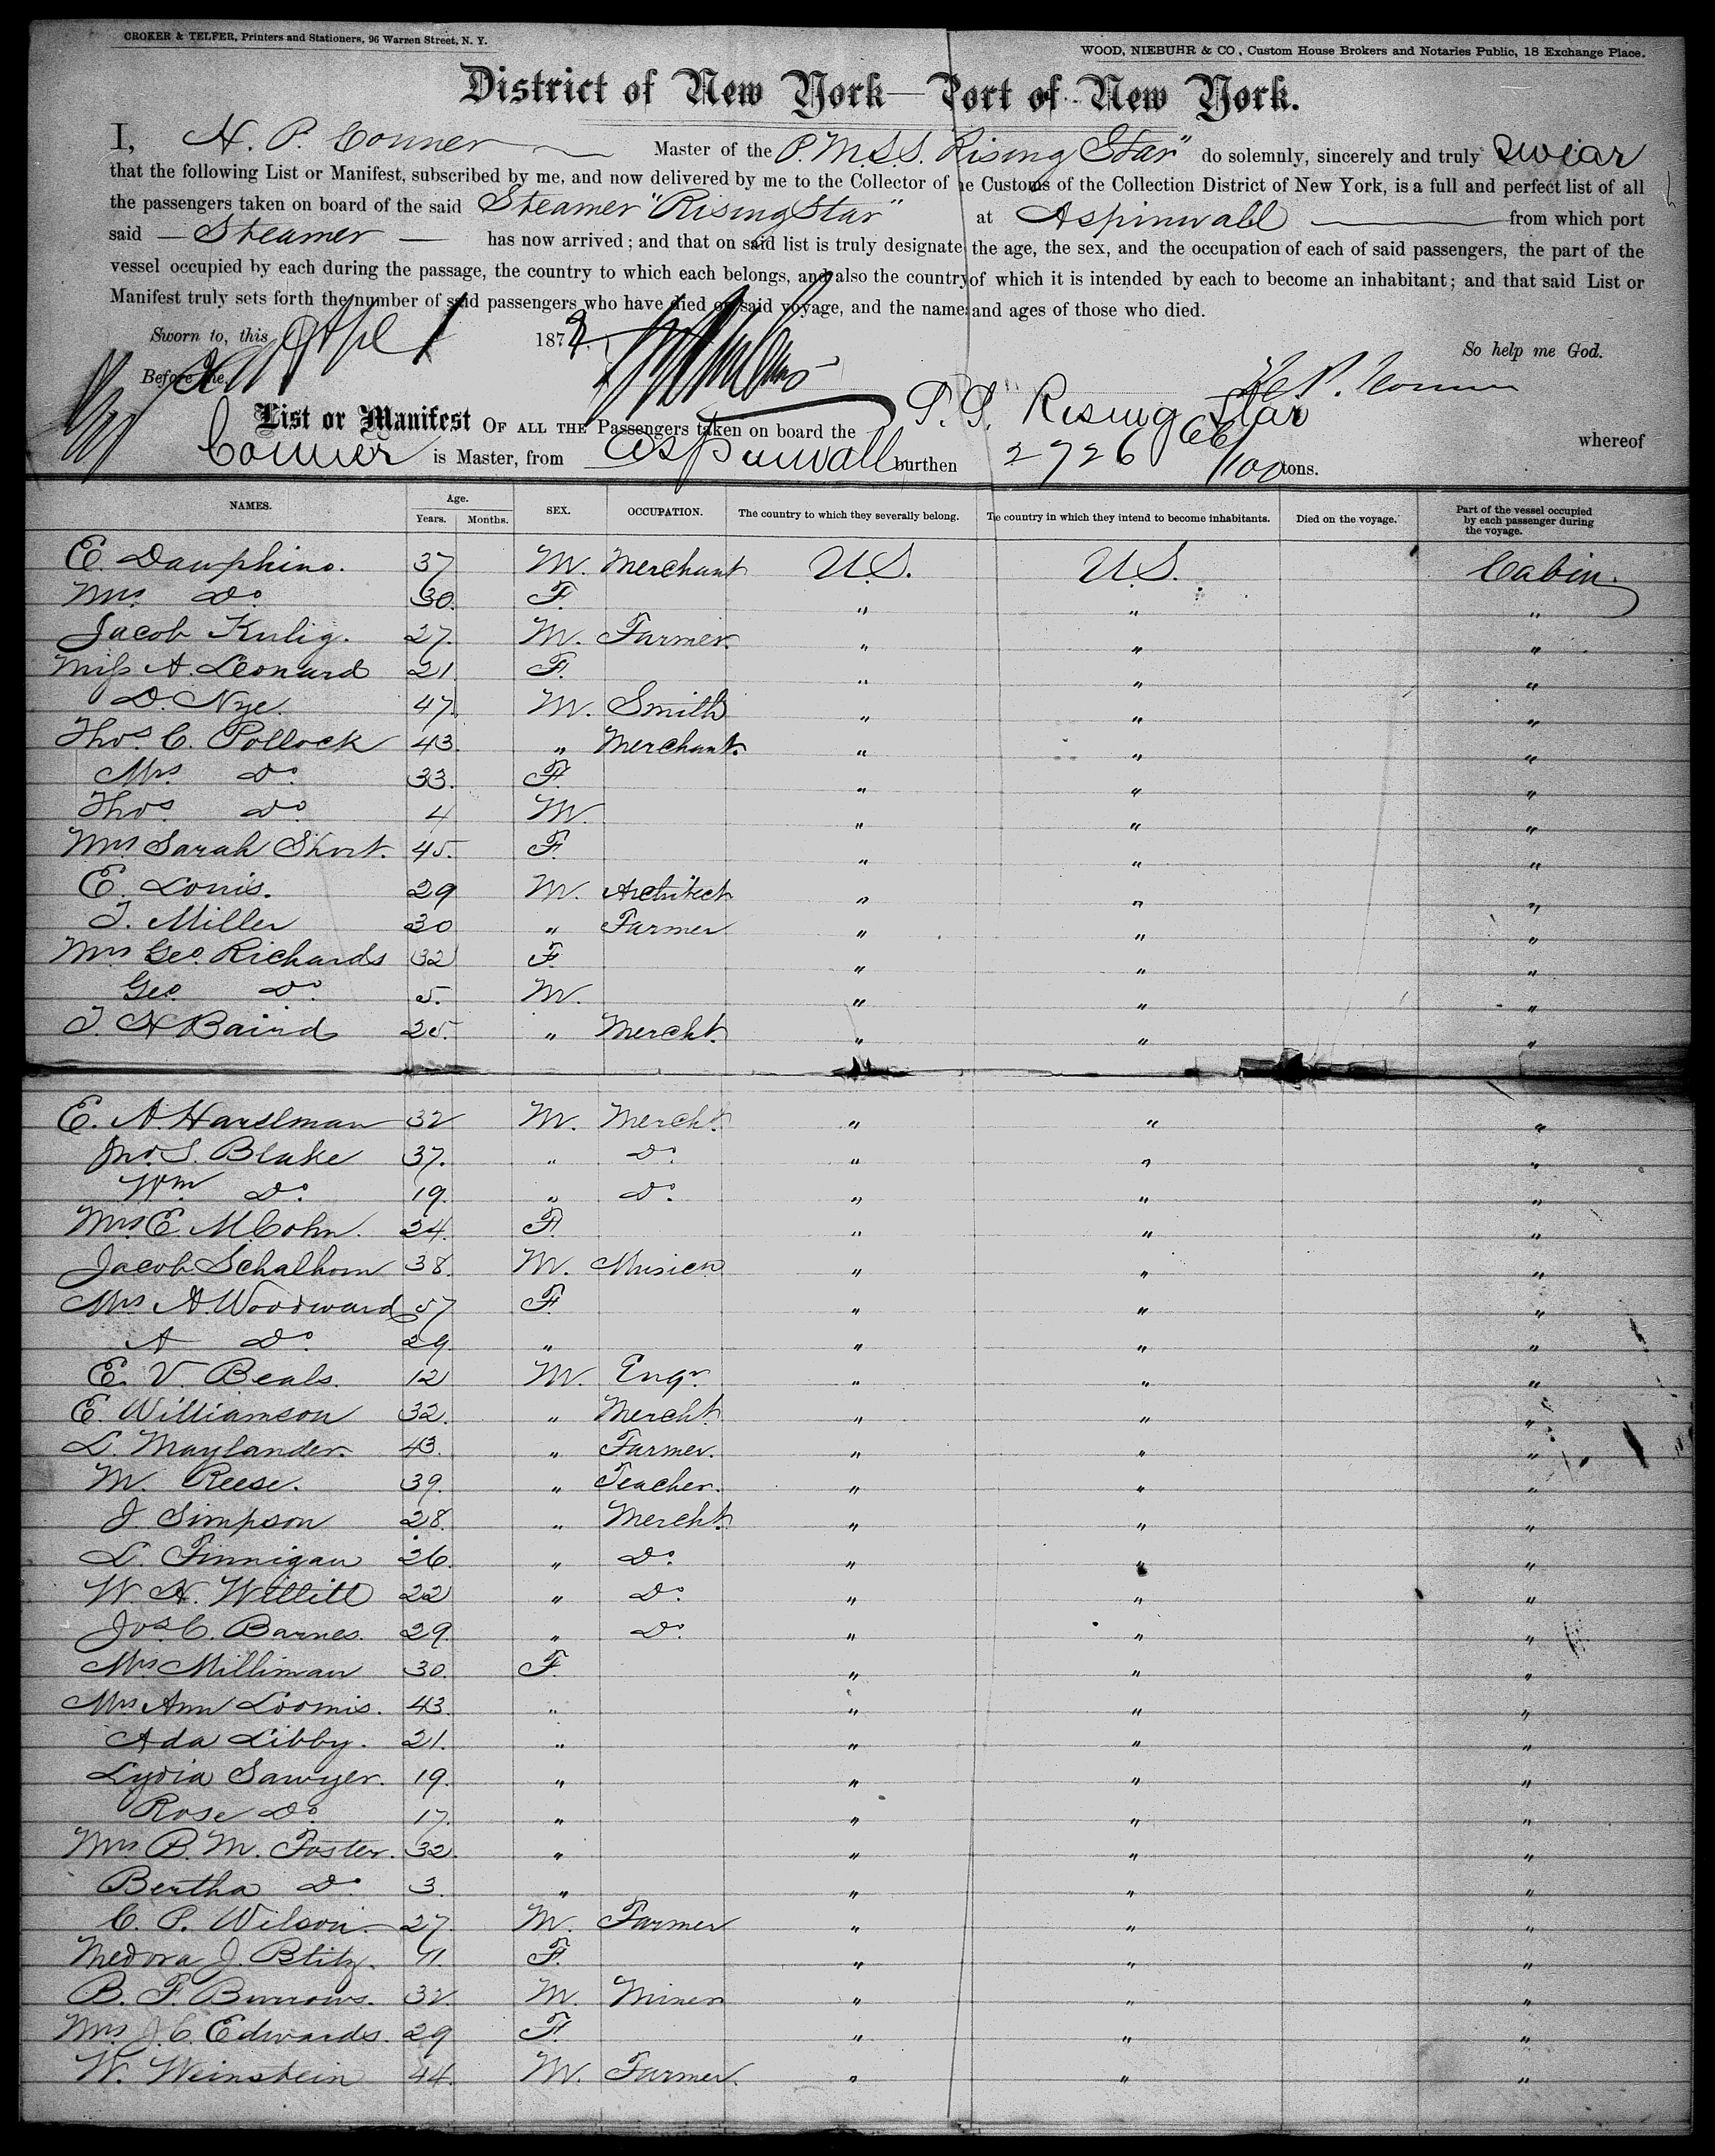 CROKER & TELFER, Printers and Stationers, 96 Warren Street, N. Y.
WOOD, NIEBUHR & CO., Custom House Brokers and Notaries Public, 18 Exchange Place.
District of New York—Port of New York.
I, H. P. Conner Master of the P.M.S.S. "Rising Star" do solemnly, sincerely and truly swear
that the following List or Manifest, subscribed by me, and now delivered by me to the Collector of he Customs of the Collection District of New York, is a full and perfect list of all
the passengers taken on board of the said Steamer "Rising Star" at Aspinwall from which port
said — Steamer — has now arrived; and that on said list is truly designate the age, the sex, and the occupation of each of said passengers, the part of the
vessel occupied by each during the passage, the country to which each belongs, and also the country of which it is intended by each to become an inhabitant; and that said List or
Manifest truly sets forth the number of said passengers who have died on said voyage, and the names and ages of those who died.
Sworn to, this Apl 1 187
So help me God.
Before me,
H. P. Conner
List or Manifest OF ALL THE Passengers taken on board the S.S. Rising Star whereof
Conner is Master, from Aspinwall burthen 2726 66/100 tons.
NAMES. Age. Years. Months. SEX. OCCUPATION. The country to which they severally belong. Te country in which they intend to become inhabitants. Died on the voyage. Part of the vessel occupied by each passenger during the voyage.
E. Dauphino. 37 M. Merchant U.S. U.S. Cabin.
Mrs. Do 30. F. " " "
Jacob Kulig. 27. M. Farmer. " " "
Miss A. Leonard 21 F. " " "
D. Nye. 47. M. Smith " " "
Thos. C. Pollock 43. " Merchant. " " "
Mrs Do 33. F. " " "
Thos Do 4 M " " "
Mrs Sarah Short. 45. F. " " "
E. Louis. 29 M. Architect " " "
T. Miller 30 " Farmer " " "
Mrs Geo. Richards 32 F. " " "
Geo. Do 5. M. " " "
T. H Baird 25. " Mercht. " " "
E. A. Harslman 32 M. Mercht. " " "
Jno. S. Blake 37. " Do " " "
Wm Do 19. " Do " " "
Mrs E. M. Cohn. 24. F. " " "
Jacob Schalhorn 38. M. Musicn " " "
Mrs A. Woodward 57 F. " " "
A Do 29. " " " "
E. V. Beals. 12 M. Engr. " " "
E. Williamson 32. " Mercht. " " "
L. Maylander. 43. " Farmer. " " "
M. Reese. 39. " Teacher. " " "
J. Simpson 28. " Mercht. " " "
L. Finnigan 26. " Do " " "
W. H. Willitt 22 " Do. " " "
Jos. C. Barnes. 29. " Do. " " "
Mrs Milliman 30. F. " " "
Mrs Ann Loomis. 43. " " " "
Ada Libby. 21. " " " "
Lydia Sawyer. 19. " " " "
Rose Do 17. " " " "
Mrs B. M. Foster. 32. " " " "
Bertha Do. 3. " " " "
C. P. Wilson. 27. M. Farmer " " "
Medora J. Blitz. 11. F. " " "
B. F. Burrows. 32. M. Miner " " "
Mrs J. C. Edwards. 29 F. " " "
W. Weinstein 44. M. Farmer. " " "